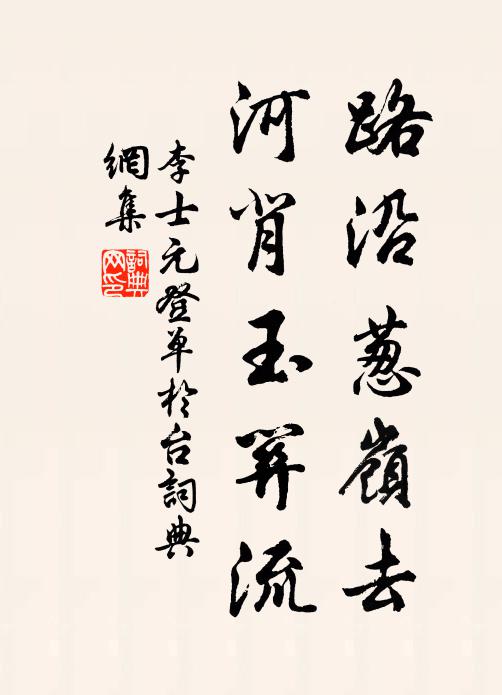 路沿葱嶺去
河背玉關流
李士元登单於台詞典
網集
詞典
网印